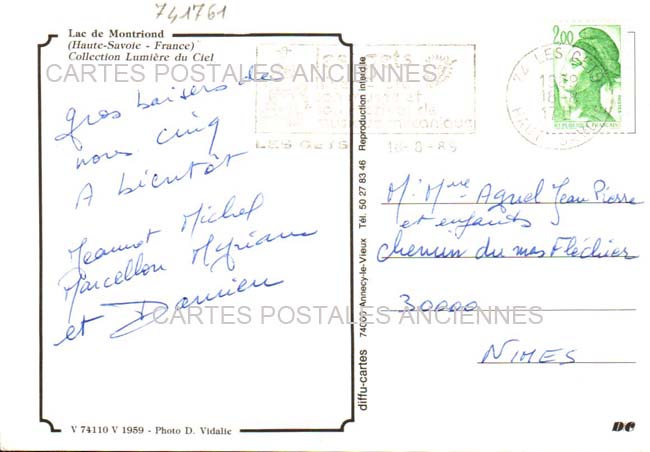 741761
Lac de Montriond
(Haute-Savoie - France)
Collection Lumière du Ciel
CARTES POSTALES ANCIENNES
gros baisers de
nous cinq
A bientôt
Jeannot Michel
Marcellou Myriam
et Damien
CARTES POSTALES ANCIENNES
V 74110 V 1959 - Photo D. Vidalie
diffu-cartes 74000 Annecy-le-Vieux Tél. 50 27 83 46 Reproduction interdite
LES GETS
18-8-89
74 LES GETS
2,00
REPUBLIQUE FRANÇAISE
M. Mme Agnel Jean Pierre
et enfants
chemin du mas Fléchier
30000
NIMES
DC